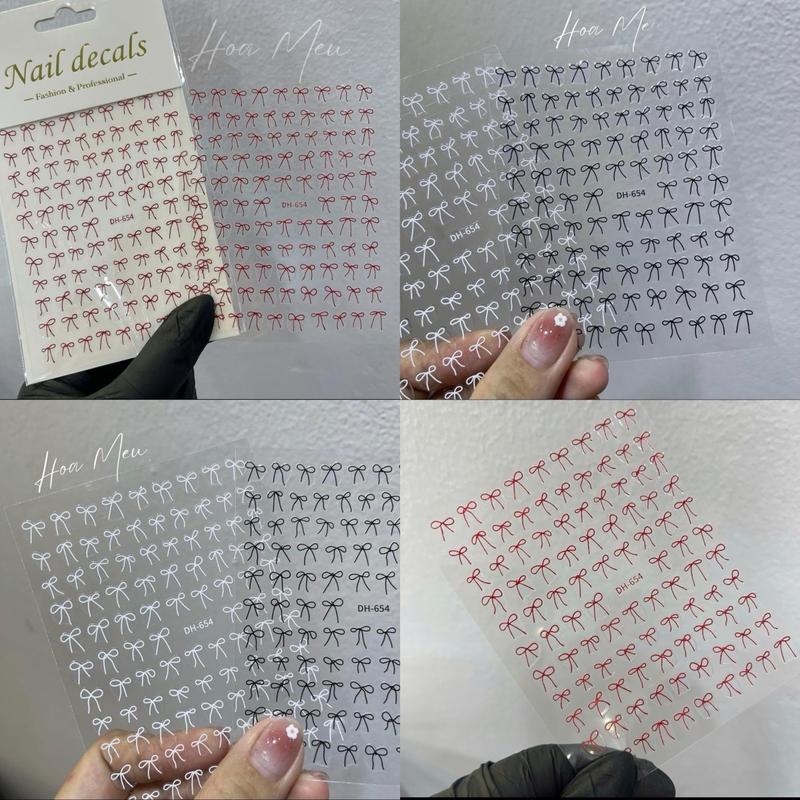 Nail decals
— Fashion & Professional —
Hoa Meu
DH-654
DH-654
Hoa Me
DH-654
DH-654
Hoa Meu
DH-654
DH-654
DH-654